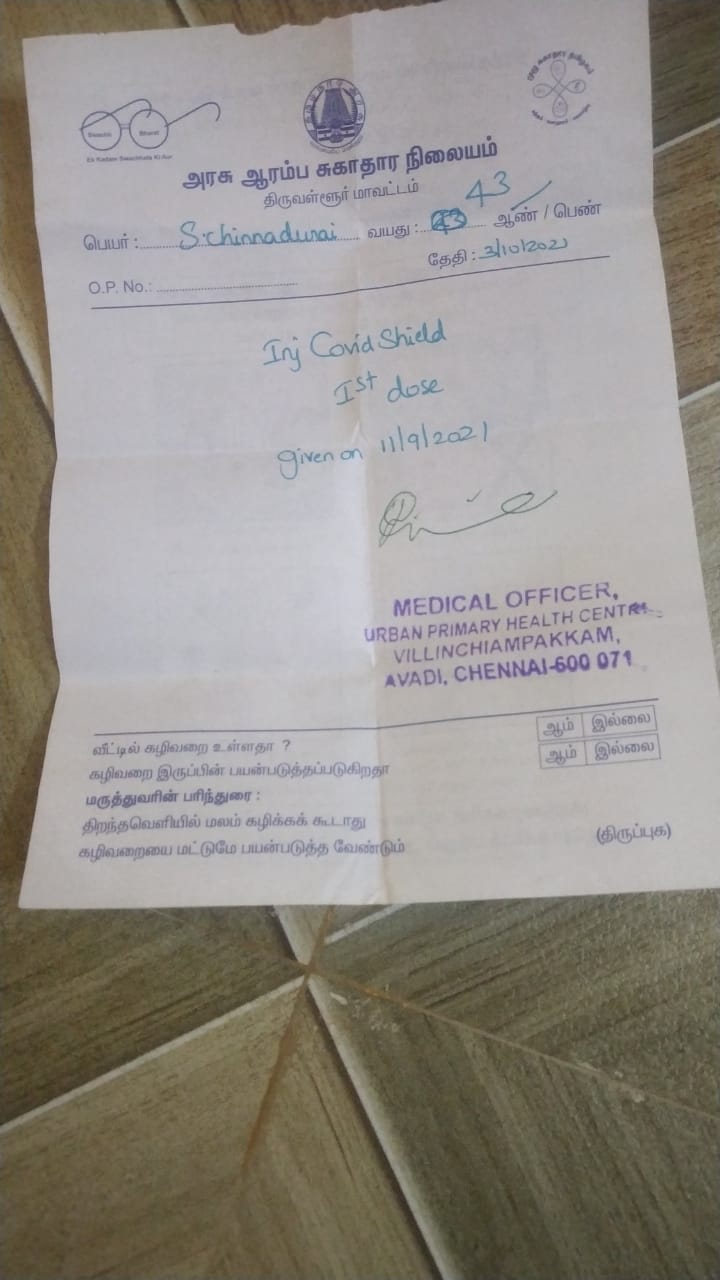 Swachh Bharat
Ek Kadam Swachhata Ki Aur
அரசு ஆரம்ப சுகாதார நிலையம்
திருவள்ளூர் மாவட்டம்
43
பெயர் : S.chinnadurai வயது : 43 ஆண் / பெண்
தேதி : 3/10/2021
O.P. No.:
Inj Covid Shield
Ist dose
given on 11/9/2021
MEDICAL OFFICER,
URBAN PRIMARY HEALTH CENTRE
VILLINCHIAMPAKKAM,
AVADI, CHENNAI-600 071
வீட்டில் கழிவறை உள்ளதா ? ஆம் இல்லை
கழிவறை இருப்பின் பயன்படுத்தப்படுகிறதா ஆம் இல்லை
மருத்துவரின் பரிந்துரை :
திறந்தவெளியில் மலம் கழிக்கக் கூடாது
கழிவறையை மட்டுமே பயன்படுத்த வேண்டும் (திருப்புக)